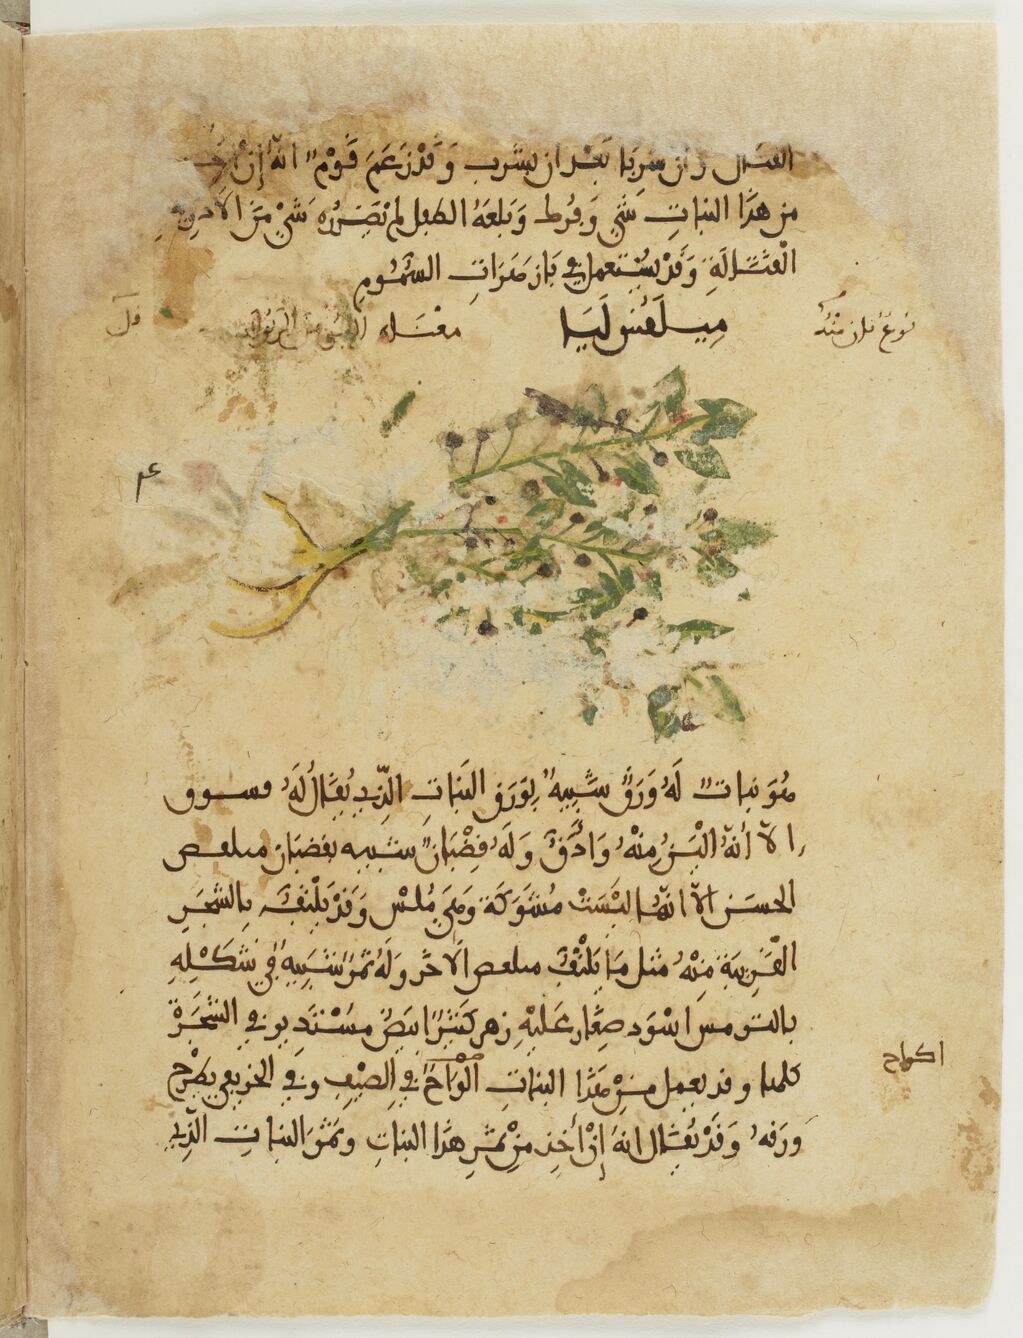 القتال إن شربا بعد أن يشرب وقد زعم قوم أنه إن
من هذا النبات شي وفرط وبلعه الطفل لم تضره شي من الأدوية
القتالة وقد يستعمل في بازهرات السموم
نوع ثان منه
ميلقس ليا
معناه
هو نبات له ورق شبيه بورق النبات الذي يقال له قسوس
إلا أنه ألين منه وأدق وله قضبان شبيه بقضبان ميلقص
الخشن إلا أنها ليست مشوكة وهي ملس وقد يلتف بالشجر
القريبة منه مثل ما يلتف ميلقص الآخر وله ثمر شبيه في شكله
بالترمس أسود صغار عليه زهر كثير أبيض مستدير في الشجرة
كلها وقد يعمل من هذا النبات أكواخ في الصيف وفي الخريف يطرح
ورقه وقد يقال أنه إن أخذ من ثمر هذا النبات وثمر النبات الذي
اكواح